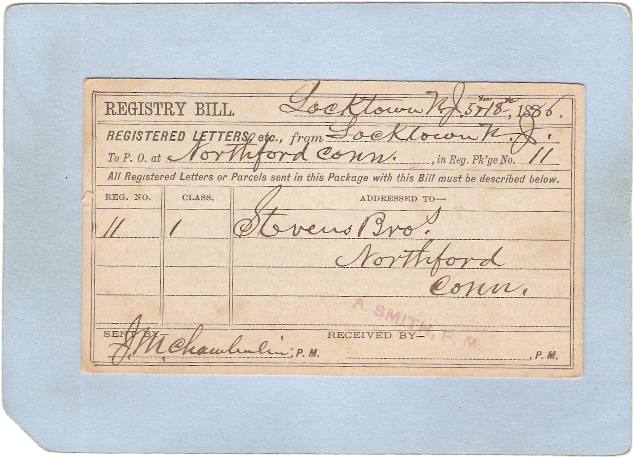 REGISTRY BILL. Locktown N.J. 5 18, 1886.
REGISTERED LETTERS, etc., from Locktown N. J.
To P. O. at Northford Conn. , in Reg. Pk'ge No. 11
All Registered Letters or Parcels sent in this Package with this Bill must be described below.
REG. NO. CLASS. ADDRESSED TO—
11 1 Stevens Bros.
Northford
Conn.
A. SMITH, P. M.
SENT BY— RECEIVED BY—
J. M. Chamberlin, P. M. , P. M.